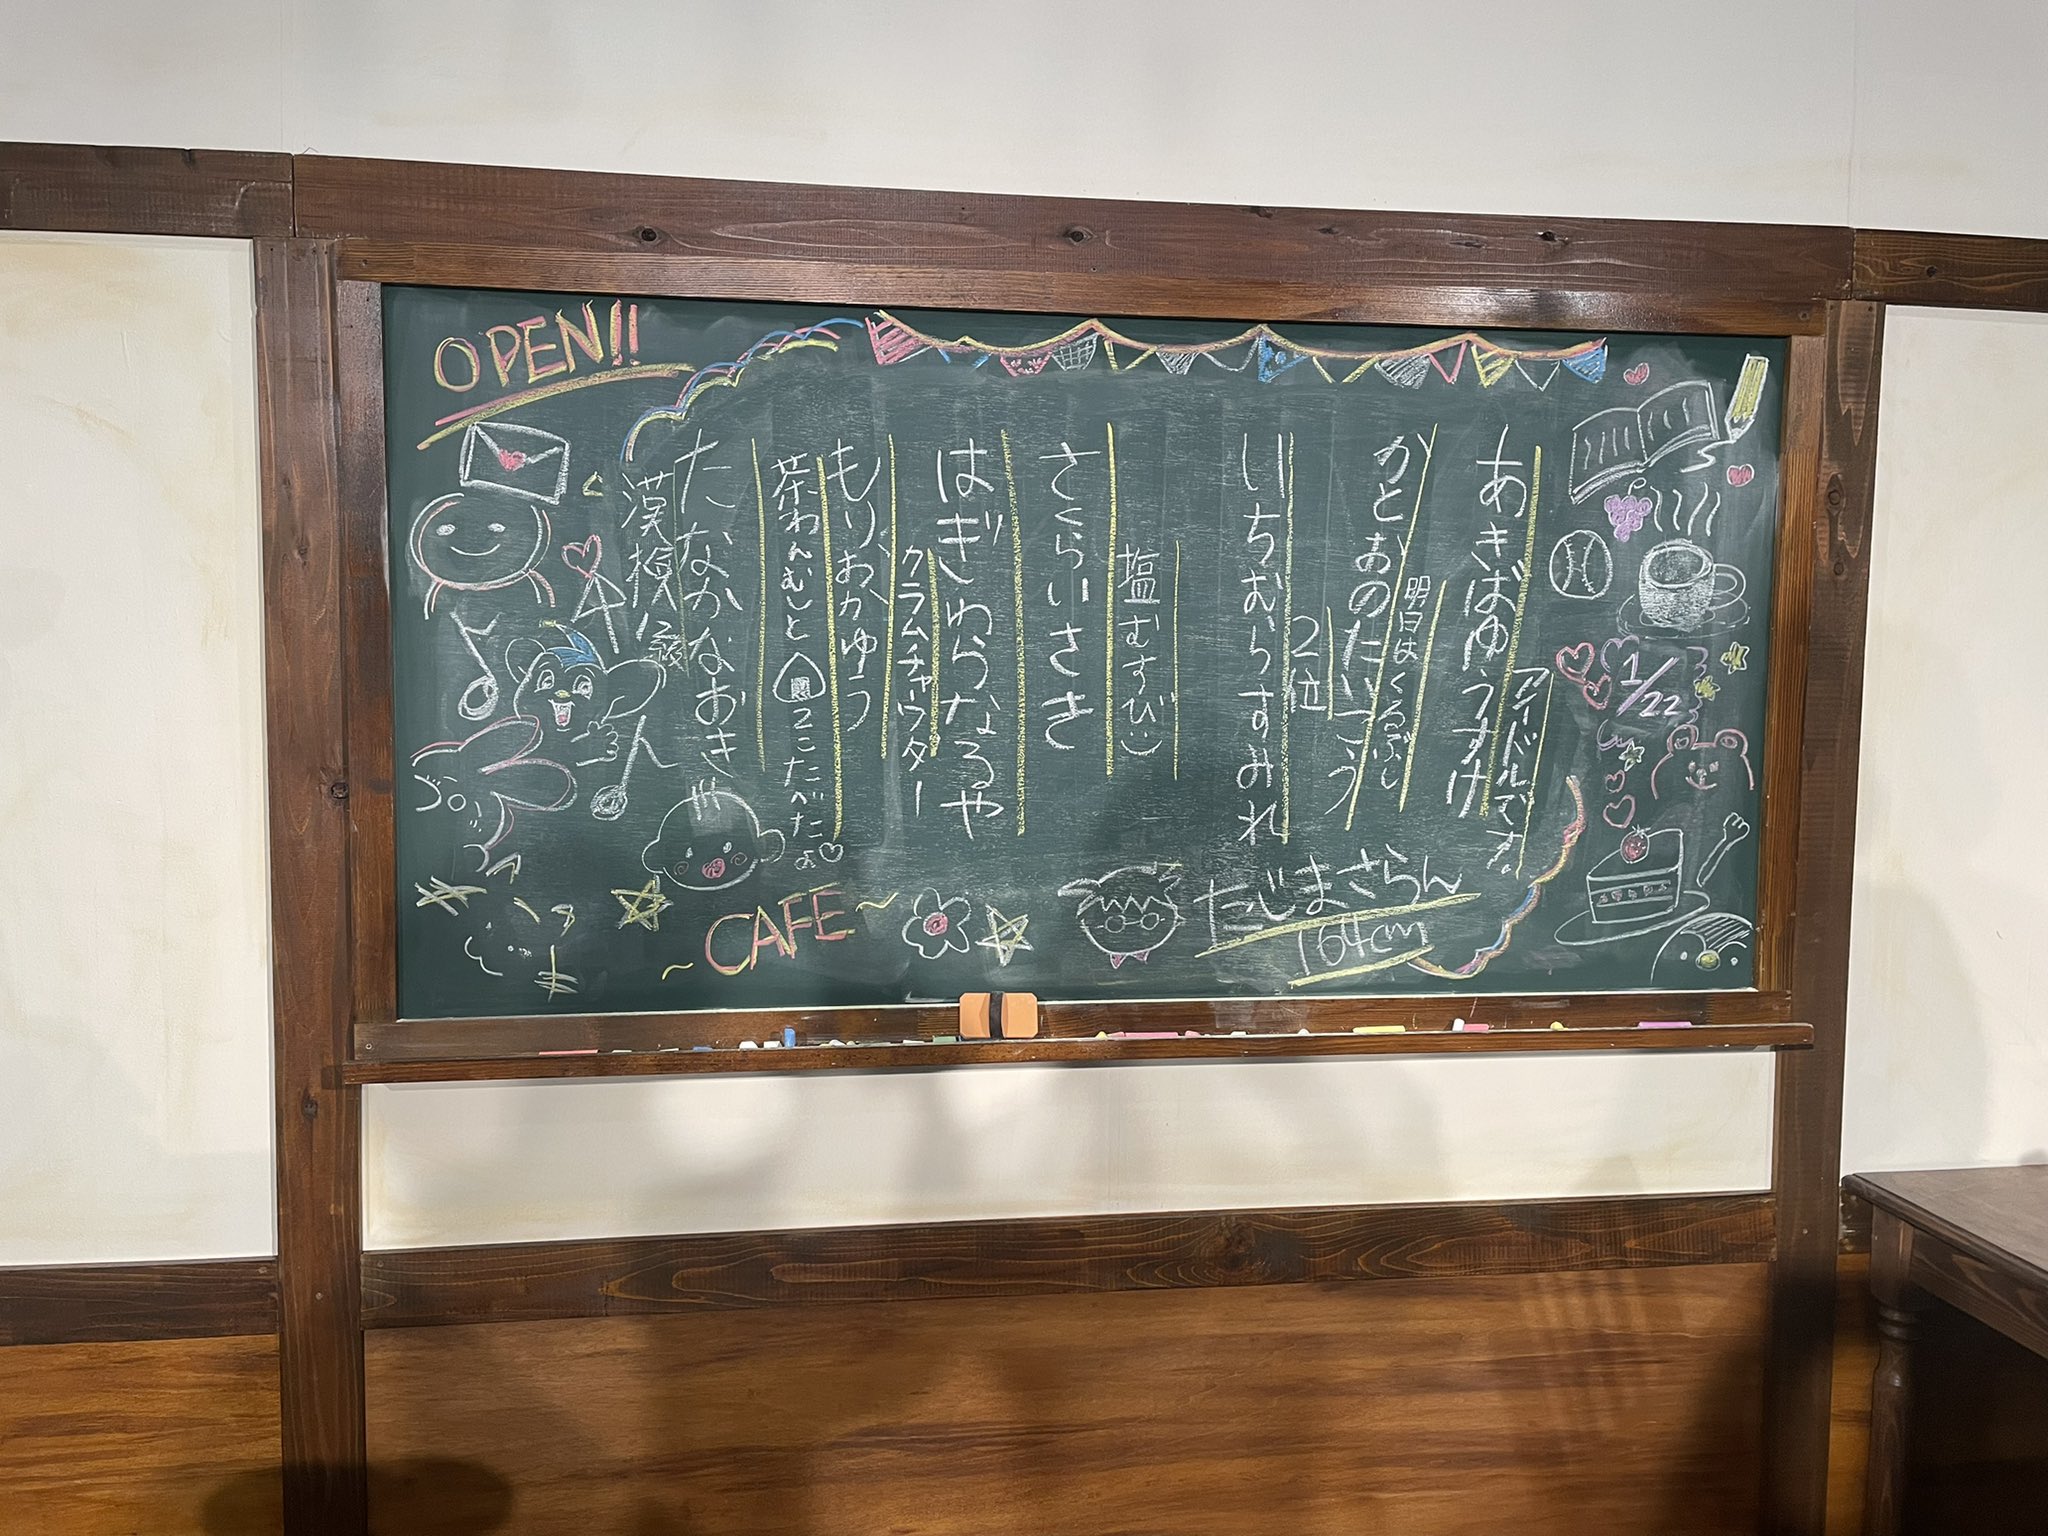 OPEN!!
あきばゆうすけ
アイドルです。
かとおのたいこう
明日はくるぶし
いちむらすみれ
2位
塩むすび
さくらいさき
はぎわらなるや
クラムチャウダー
もりおかゆう
茶わんむしと🍙2こたべたよ♡
たなかなおき
漢検八級
たじまさらん
164cm
~CAFE~
1/22